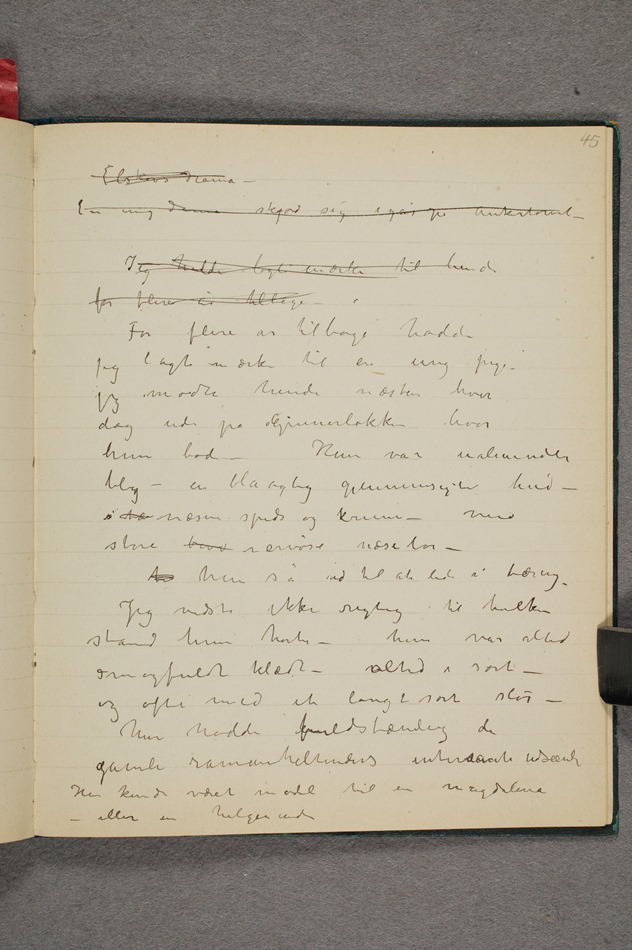 45
Elskovs drama –
En ung dame skjød sig igår på Ankertorvet –
Jeg havde lagt mærke til hende
for flere år tilbage –
For flere år tilbage hadde
jeg lagt mærke til en ung pige.
jeg mødte hende næsten hver
dag ude på Grünerløkken hvor
hun bod – Hun var ualmindelig
bleg – en blaagtig gjennemsigtig hud –
næsen spids og krum – med
store nervøse næsebor –
Hun så ud til at lide i tæring –
Jeg vidste ikke rigtig til hvilken
stand hun hørte – hun var altid
smagfuldt klædt – altid i sort –
og ofte med et langt sort slør –
Hun hadde fuldstændig de
gamle romanheltinders interessante udseende
Hun kunde været model til en magdalena
– eller en helgeninde